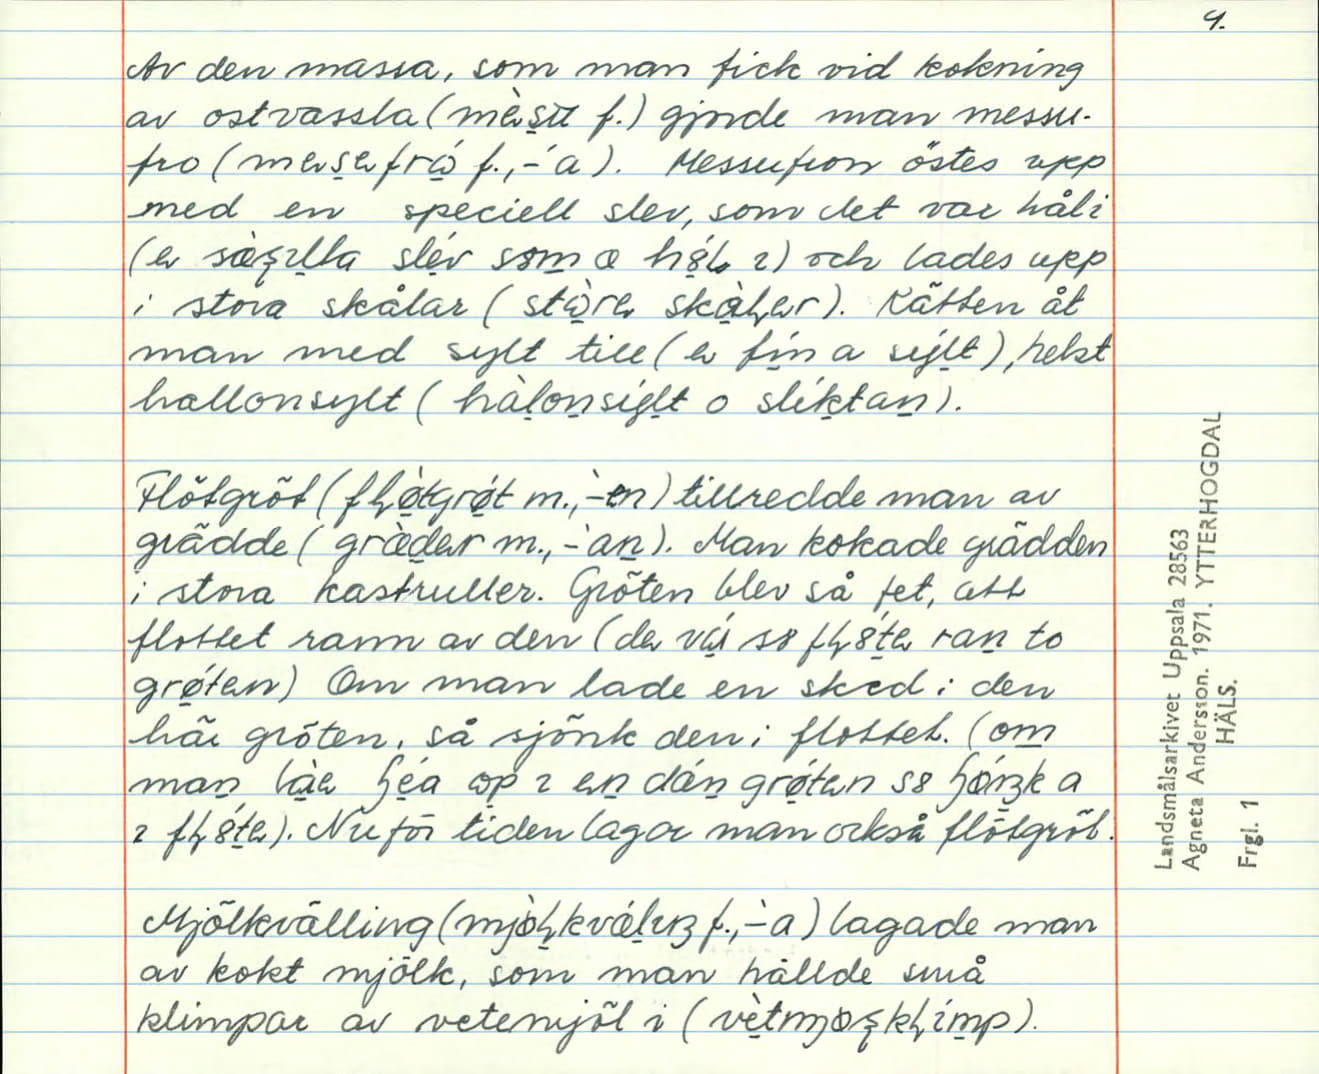 4.
Av den massa, som man fick vid kokning
av ostvassla (mèsu f.) gjorde man messu-
fro (mesefró f., -´a). Messufron östes upp
med en speciell slev, som det var hål i
(e sæ̀ʂılla slév som æ hɞ́l ı) och lades upp
i stora skålar (stòre skàɽer). Rätten åt
man med sylt till (e fín a sýlt), helst
hallonsylt (hàlonsýlt o slíktan).
Flötgröt (fɽø̀tgrøt m., -̀en) tillredde man av
grädde (græ̀der m., -̀an). Man kokade grädden
i stora kastruller. Gröten blev så fet, att
flottet rann av den (de vá sɞ fɽɞ́te ran to
grǿten) Om man lade en sked i den
här gröten, så sjönk den i flottet. (om
man làe ɧéa op ı en dán grǿten sɞ ɧǿŋk a
ı fɽɞ́te). Nu för tiden lagar man också flötgröt.
Mjölkvälling (mjø̀ɽkvǽlıŋ f., -̀a) lagade man
av kokt mjölk, som man hällde små
klimpar av vetemjöl i (vètmjøʂkɽímp).
Landsmålsarkivet Uppsala 28563
Agneta Andersson. 1971. YTTERHOGDAL
HÄLS.
Frgl. 1